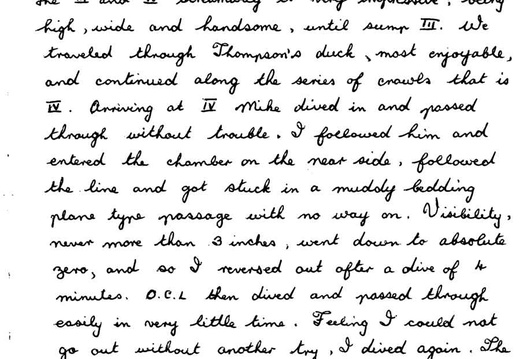 The II and IV streamway is very impressive, being
high, wide and handsome, until sump III. We
traveled through Thompson's duck, most enjoyable,
and continued along the series of crawls that is
IV. Arriving at IV Mike dived in and passed
through without trouble. I followed him and
entered the chamber on the near side, followed
the line and got stuck in a muddy bedding
plane type passage with no way on. Visibility,
never more than 3 inches, went down to absolute
zero, and so I reversed out after a dive of 4
minutes. O.C.L then dived and passed through
easily in very little time. Feeling I could not
go out without another try, I dived again. The